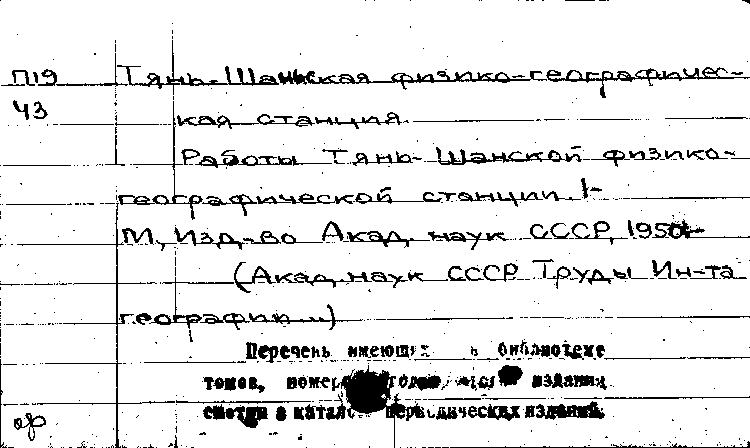 П19 Тянь-Шаньская физико-географичес-
43 кая станция.
Работы Тянь-Шанской физико-
географической станции. 1-
М., Изд-во Акад. наук СССР, 1950-
(Акад. наук СССР Труды Ин-та
географии ..)
Перечень имеющих в библиотеке
томов, номер годов, издания
смотри в катал периодических изданий.
ор